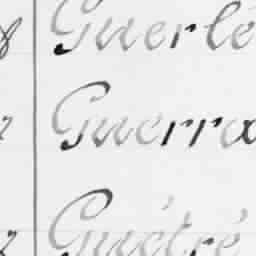 Guerlé
Guerra
Guétré